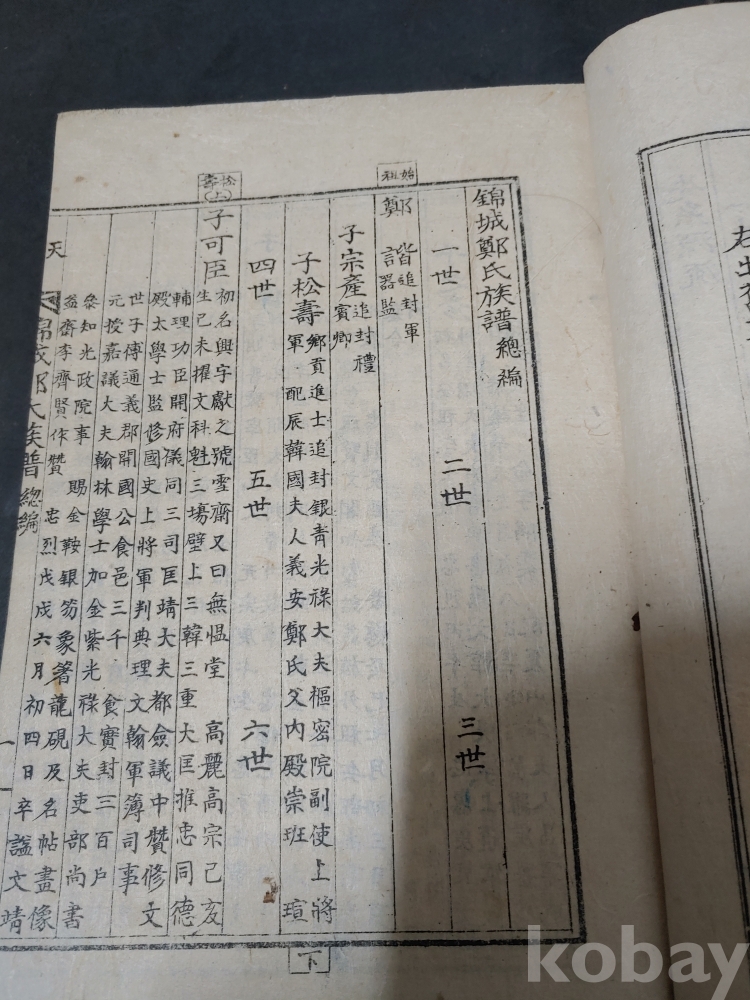 始
科
松
壽
(上)
錦城鄭氏族譜 總編
一世 二世 三世
鄭諧 追封軍
器監
子宗產 追封禮
賓卿
子松壽 鄉貢進士追封銀靑光祿大夫樞密院副使上將
軍 配辰韓國夫人義安鄭氏父內殿崇班 瑄
四世 五世 六世
子可臣 初名興字獻之號雪齋又曰無慍堂 高麗高宗己亥
生己未擢文科魁三場壁上三韓三重大匡推忠同德
輔理功臣開府儀同三司匡靖大夫都僉議中贊修文
殿太學士監修國史上將軍判典理文翰軍簿司事
世子傅通義郡開國公食邑三千 食實封三百戶
元授嘉議大夫翰林學士加金紫光祿大夫吏部尚書
叅知光政院事 賜金鞍銀笏象箸龍硯及名帖畫像
益齋李齊賢作贊 忠烈戊戌六月初四日卒諡文靖
天
錦城鄭氏族譜 總編
一
下
kobay